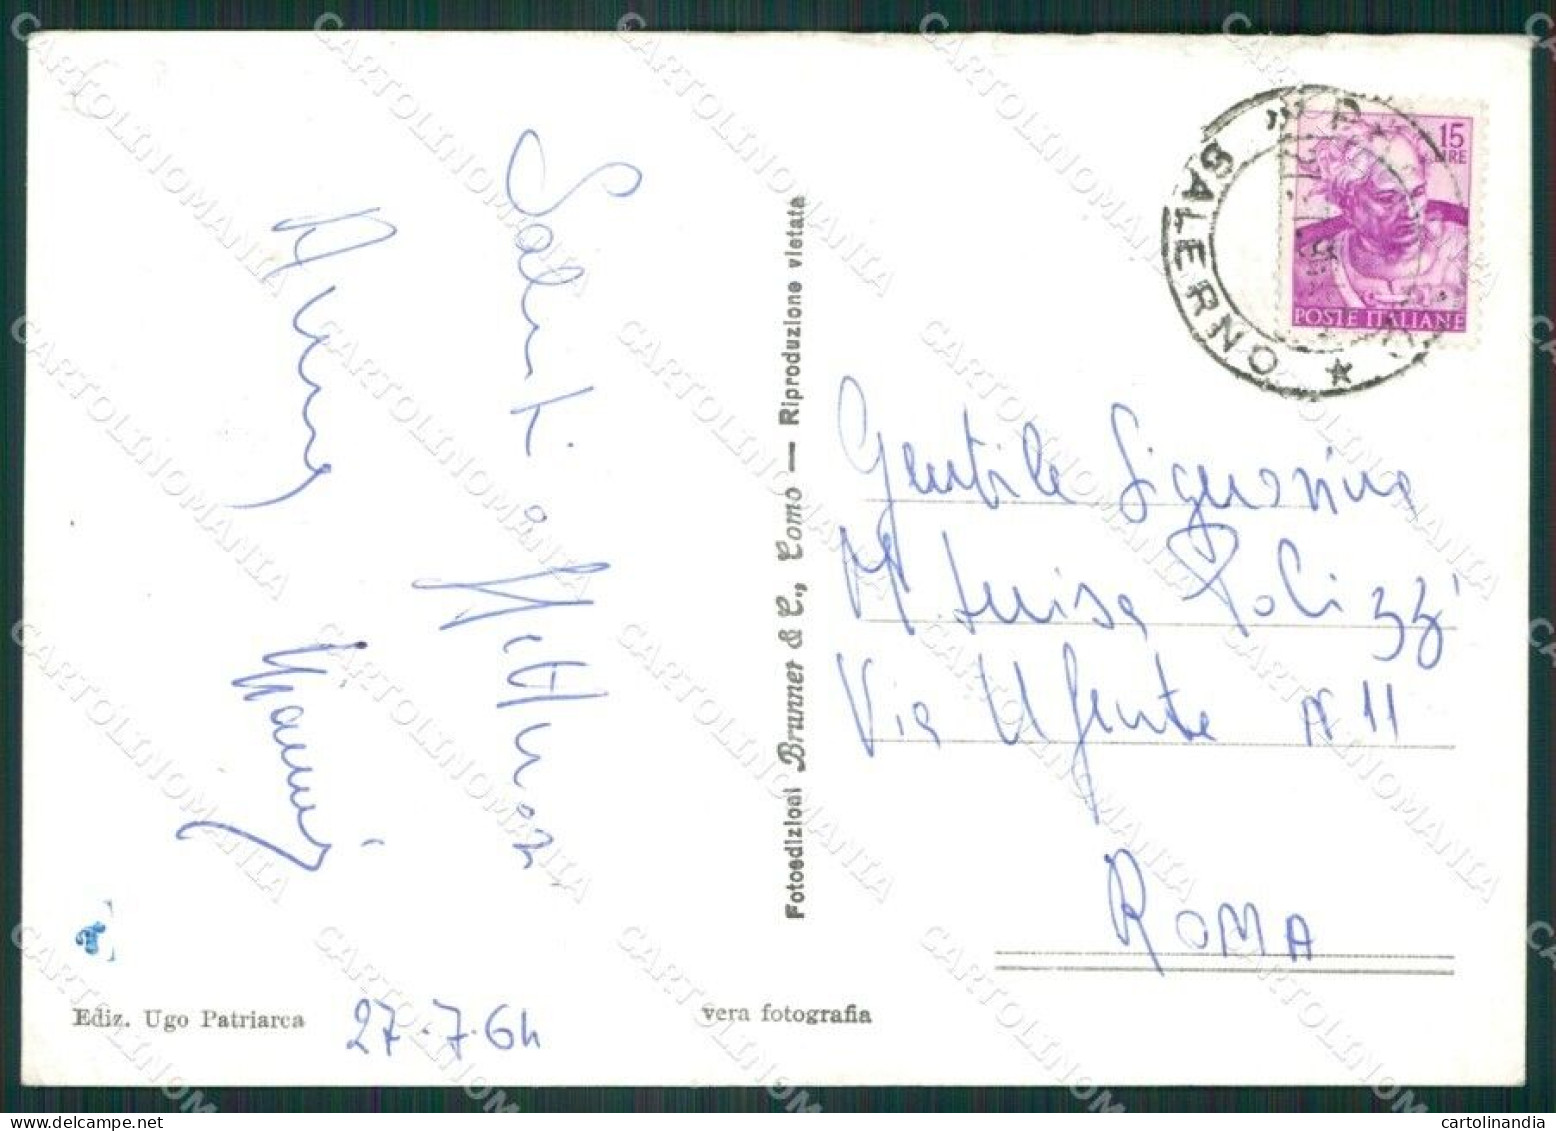 Saluti a
Anna
Gentile Signorina
M. Luisa Polizzi
Via Ufente N 11
ROMA
27.7.64
Ediz. Ugo Patriarca
vera fotografia
Fotoedizioni Brunner & C., Como — Riproduzione vietata
SALERNO
15
LIRE
POSTE ITALIANE
CARTOLINOMANIA
cartolinandia